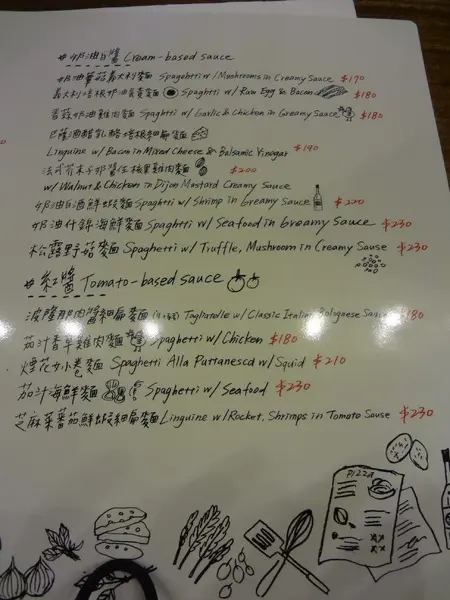 # 奶油白醬 Cream-based sauce
奶油蘑菇義大利麵 Spaghetti w/ Mushrooms in Creamy Sauce $170
義大利培根奶油蛋黃麵 Spaghtti w/ Raw Egg & Bacon $180
蒜蒜奶油雞肉麵 Spaghtti w/ Garlic & Chicken in Creamy Sauce $180
巴薩酒醋乳酪培根細扁麵
Linguine w/ Bacon in Mixed Cheese & Balsamic Vinegar $190
法式芥末子奶醬佐核果雞肉麵 $200
w/ Walnut & Chicken in Dijon Mustard Creamy Sauce
奶油白酒鮮蝦麵 Spaghtti w/ Shrimp in Creamy Sauce $220
奶油什錦海鮮麵 Spaghtti w/ Seafood in Creamy Sauce $230
松露野菇麵 Spaghetti w/ Truffle, Mushroom in Creamy Sause $230
# 紅醬 Tomato-based sauce
波隆那肉醬細扁麵 Tagliatelle w/ Classic Italian Bolognese Sauce $180
茄汁香草雞肉麵 Spaghetti w/ Chicken $180
煙花女小卷麵 Spaghetti Alla Puttanesca w/ Squid $210
茄汁海鮮麵 Spaghetti w/ Seafood $230
芝麻菜蕃茄鮮蝦細扁麵 Linguine w/ Rocket, Shrimps in Tomato Sause $230
Pizza